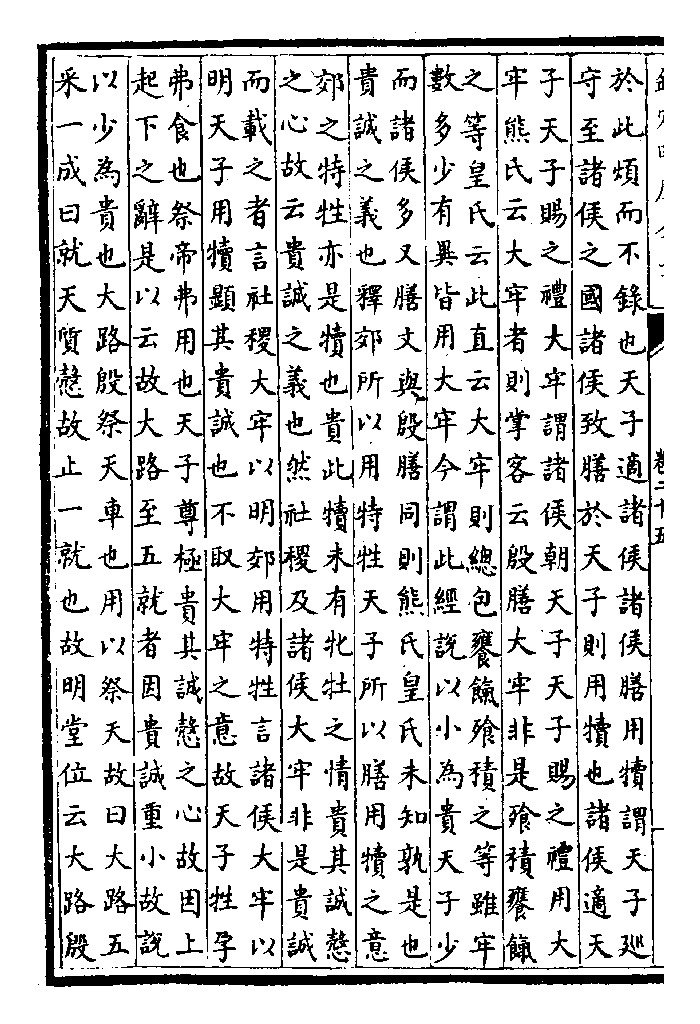 於此煩而不錄也天子適諸侯諸侯膳用犢謂天子廵
守至諸侯之國諸侯致膳於天子則用犢也諸侯適天
子天子賜之禮大牢謂諸侯朝天子天子賜之禮用大
牢熊氏云大牢者則掌客云殷膳大牢非是飱積饔餼
之等皇氏云此直云大牢則總包饔餼飱積之等雖牢
數多少有異皆用大牢今謂此經說以小為貴天子少
而諸侯多又膳文與殷膳同則熊氏皇氏未知孰是也
貴誠之義也釋郊所以用特牲天子所以膳用犢之意
郊之特牲亦是犢也貴此犢未有牝牡之情貴其誠慤
之心故云貴誠之義也然社稷及諸侯大牢非是貴誠
而載之者言社稷大牢以明郊用特牲言諸侯大牢以
明天子用犢顯其貴誠也不取大牢之意故天子牲孕
弗食也祭帝弗用也天子尊極貴其誠慤之心故因上
起下之辭是以云故大路至五就者因貴誠重小故說
以少為貴也大路殷祭天車也用以祭天故曰大路五
采一成曰就天質慤故止一就也故明堂位云大路殷
卷二十五